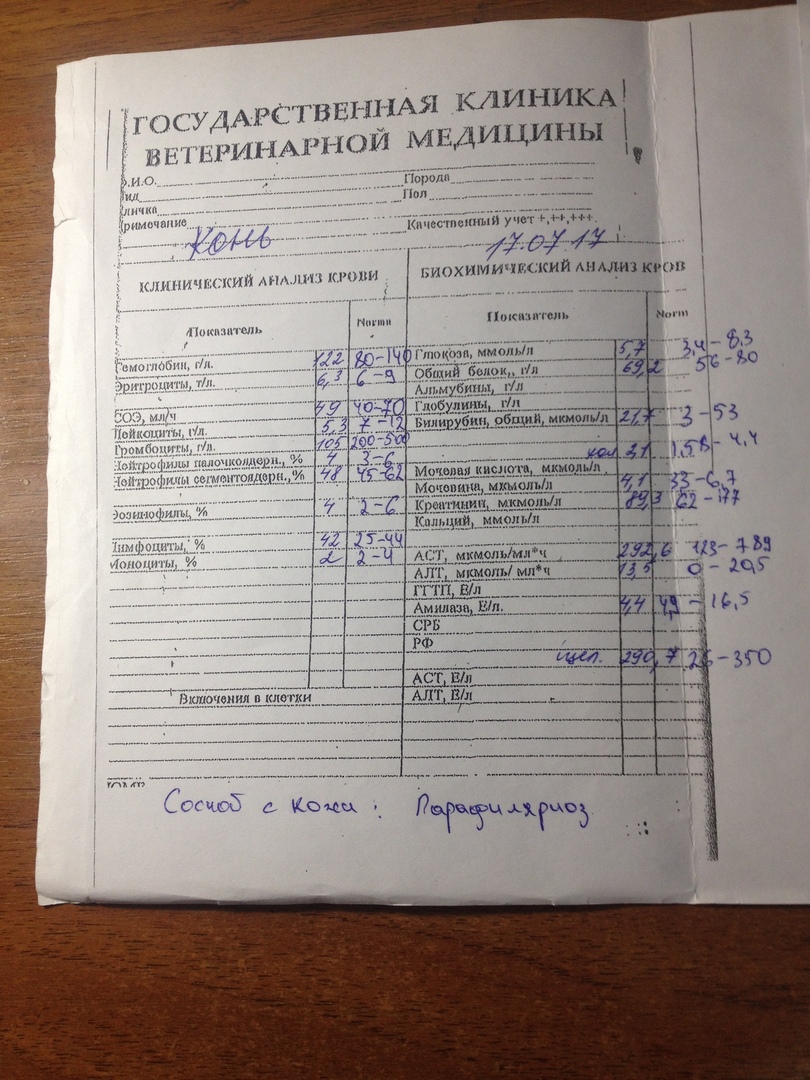 ГОСУДАРСТВЕННАЯ КЛИНИКА
ВЕТЕРИНАРНОЙ МЕДИЦИНЫ
.И.О. Порода
ид Пол
личка
римечание Качественный учет +,++,+++.
Конь 17.07.17
КЛИНИЧЕСКИЙ АНАЛИЗ КРОВИ БИОХИМИЧЕСКИЙ АНАЛИЗ КРОВ
Показатель Norma Показатель Norm
Гемоглобин, г/л. 122 80-140 Глюкоза, ммоль/л 5,7 3,4-8,3
Эритроциты, т/л. 6,3 6-9 Общий белок,, г/л 69,2 56-80
Альмубины, г/л
СОЭ, мл/ч 49 40-70 Глобулины, г/л
Лейкоциты, г/л. 5,3 7-12 Билирубин, общий, мкмоль/л 21,7 3-53
Тромбоциты, г/л. 105 200-500 3,1 1,58-4,4
Нейтрофилы палочкоядерн., % 4 3-6 Мочевая кислота, мкмоль/л
Нейтрофилы сегментоядерн.,% 48 45-62 Мочевина, мкмоль/л 4,1 3,3-6,7
Эозинофилы, % 4 2-6 Креатинин, мкмоль/л 89,3 62-177
Кальций, ммоль/л
Лимфоциты, % 42 25-44 АСТ, мкмоль/мл*ч 292,6 123-789
Моноциты, % 2 2-4 АЛТ, мкмоль/ мл*ч 13,5 0-20,5
ГГТП, Е/л
Амилаза, Е/л. 4,4 4,9-16,5
СРБ
РФ
щел. 290,7 26-350
АСТ, Е/л
Включения в клетки АЛТ, Е/л
Соскоб с кожи: Парафиляриоз